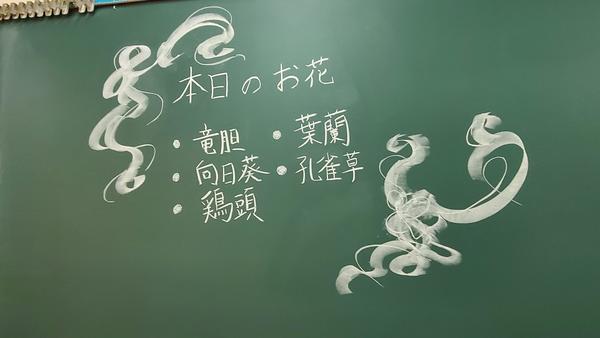 本日のお花
・竜胆 ・葉蘭
・向日葵 ・孔雀草
・鶏頭